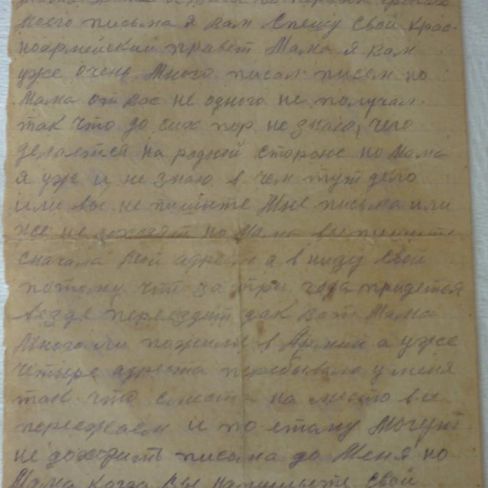 моего письма я вам спешу свой крас-
ноармейский привет Мама я вам
уже очень много писал писем но
Мама от вас не одного не получал
так что до сих пор не знаю, чего
делается на родной стороне но Мама
я уже и не знаю в чем тут дело
или вы не пишите Мне письма или
же не доходят но Мама вы пишите
сначала мой адрес а в низу свой
потому что за три года придется
везде переездит дак вот Мама
Много ли пожили в Армии а уже
четыре адреса перебывало у меня
так что с места на место все
переежаем и по етому Могут
не доходить письма до Меня но
Мама когда вы напишите свой